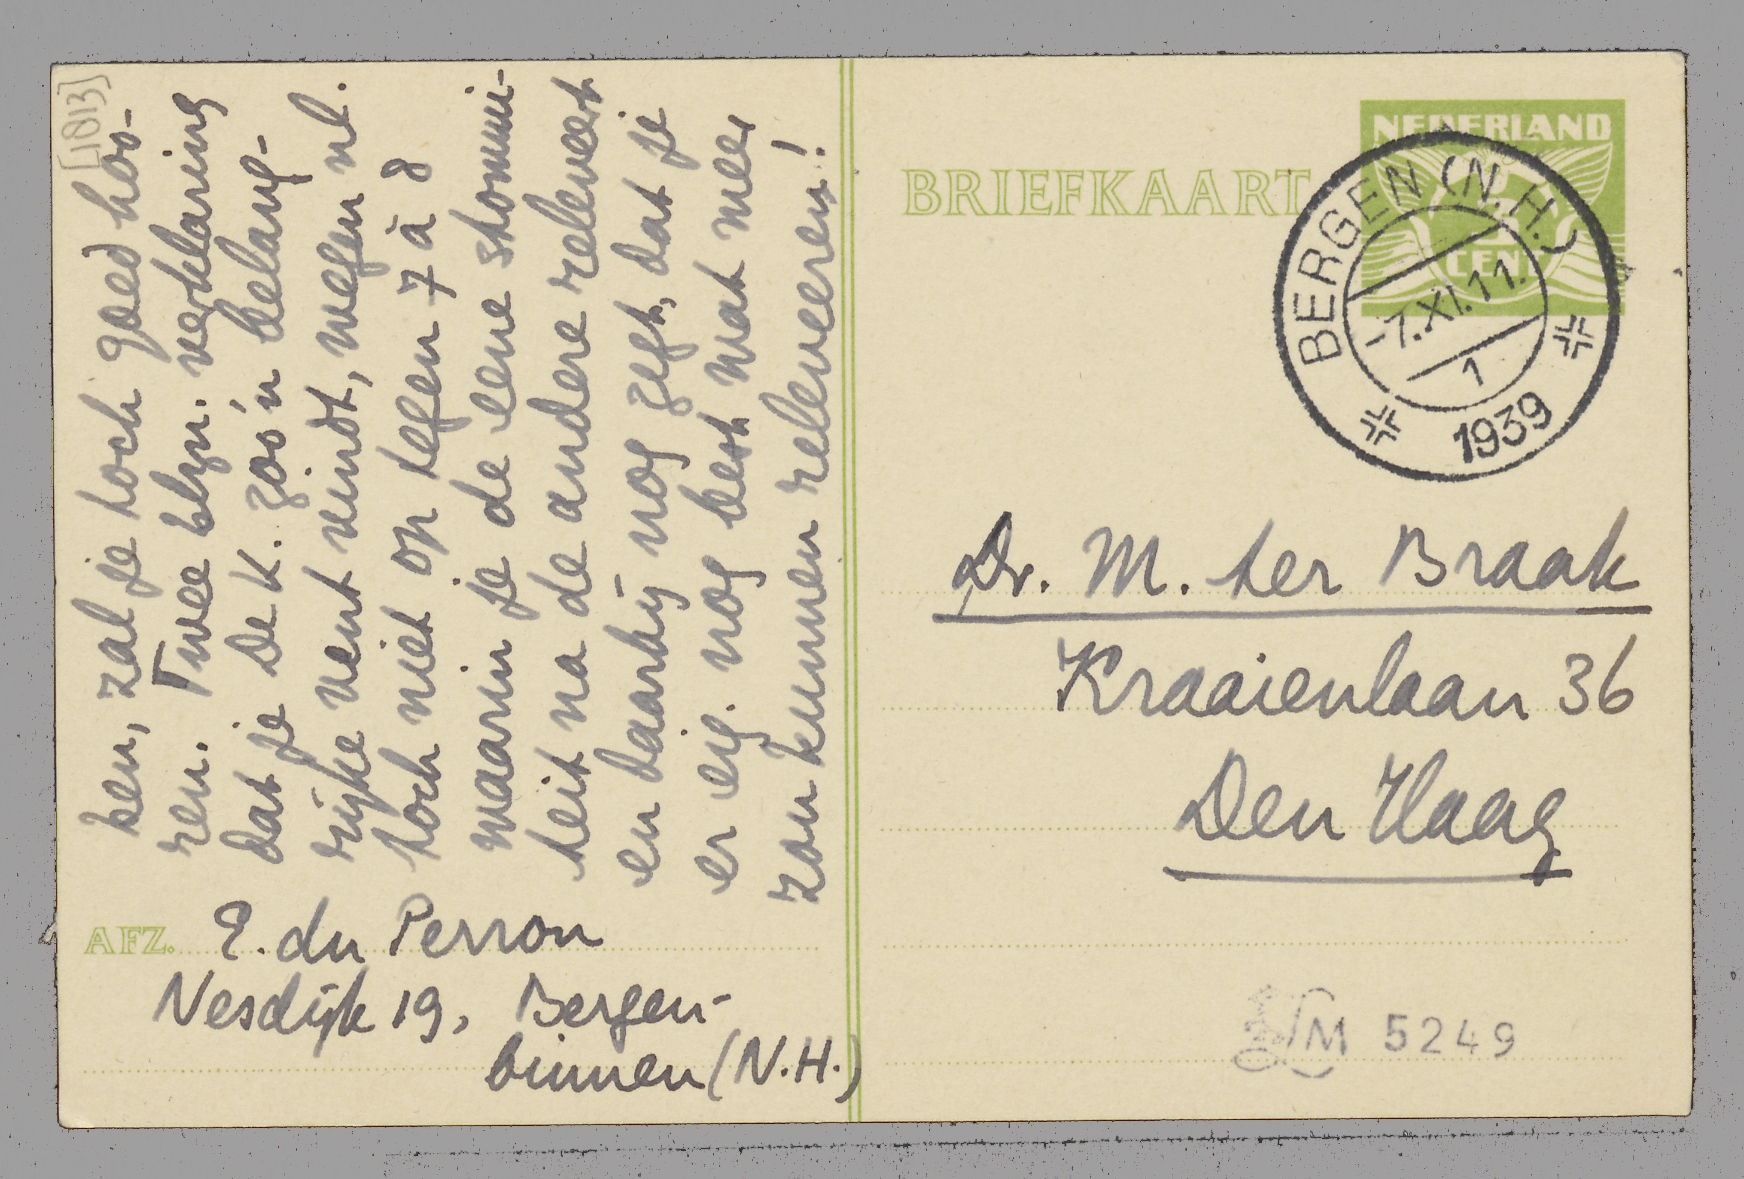 [1813]
ken, zal je toch goed hoo-
ren. Twee blzn. verklaring
dat je De K. zoo'n belang-
rijke vent vindt, wegen nl.
toch niet op tegen 7 à 8
waarin je de eene stommi-
teit na de andere releveert
en daarbij nog zegt, dat je
er eig. nog best wat meer
zou kunnen releveeren!
AFZ. E. du Perron
Nesdijk 19, Bergen-
binnen (N.H.)
BRIEFKAART
NEDERLAND
CENT
BERGEN (N.H.)
-7.XI.11.
1
1939
Dr. M. ter Braak
Kraaienlaan 36
Den Haag
LM 5249